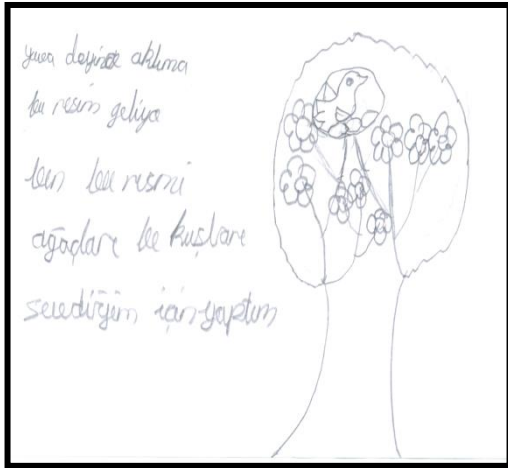 yuva deyince aklıma
bu resim geliyo
ben bu resmi
ağaçları ve kuşları
sevediğim için yaptım